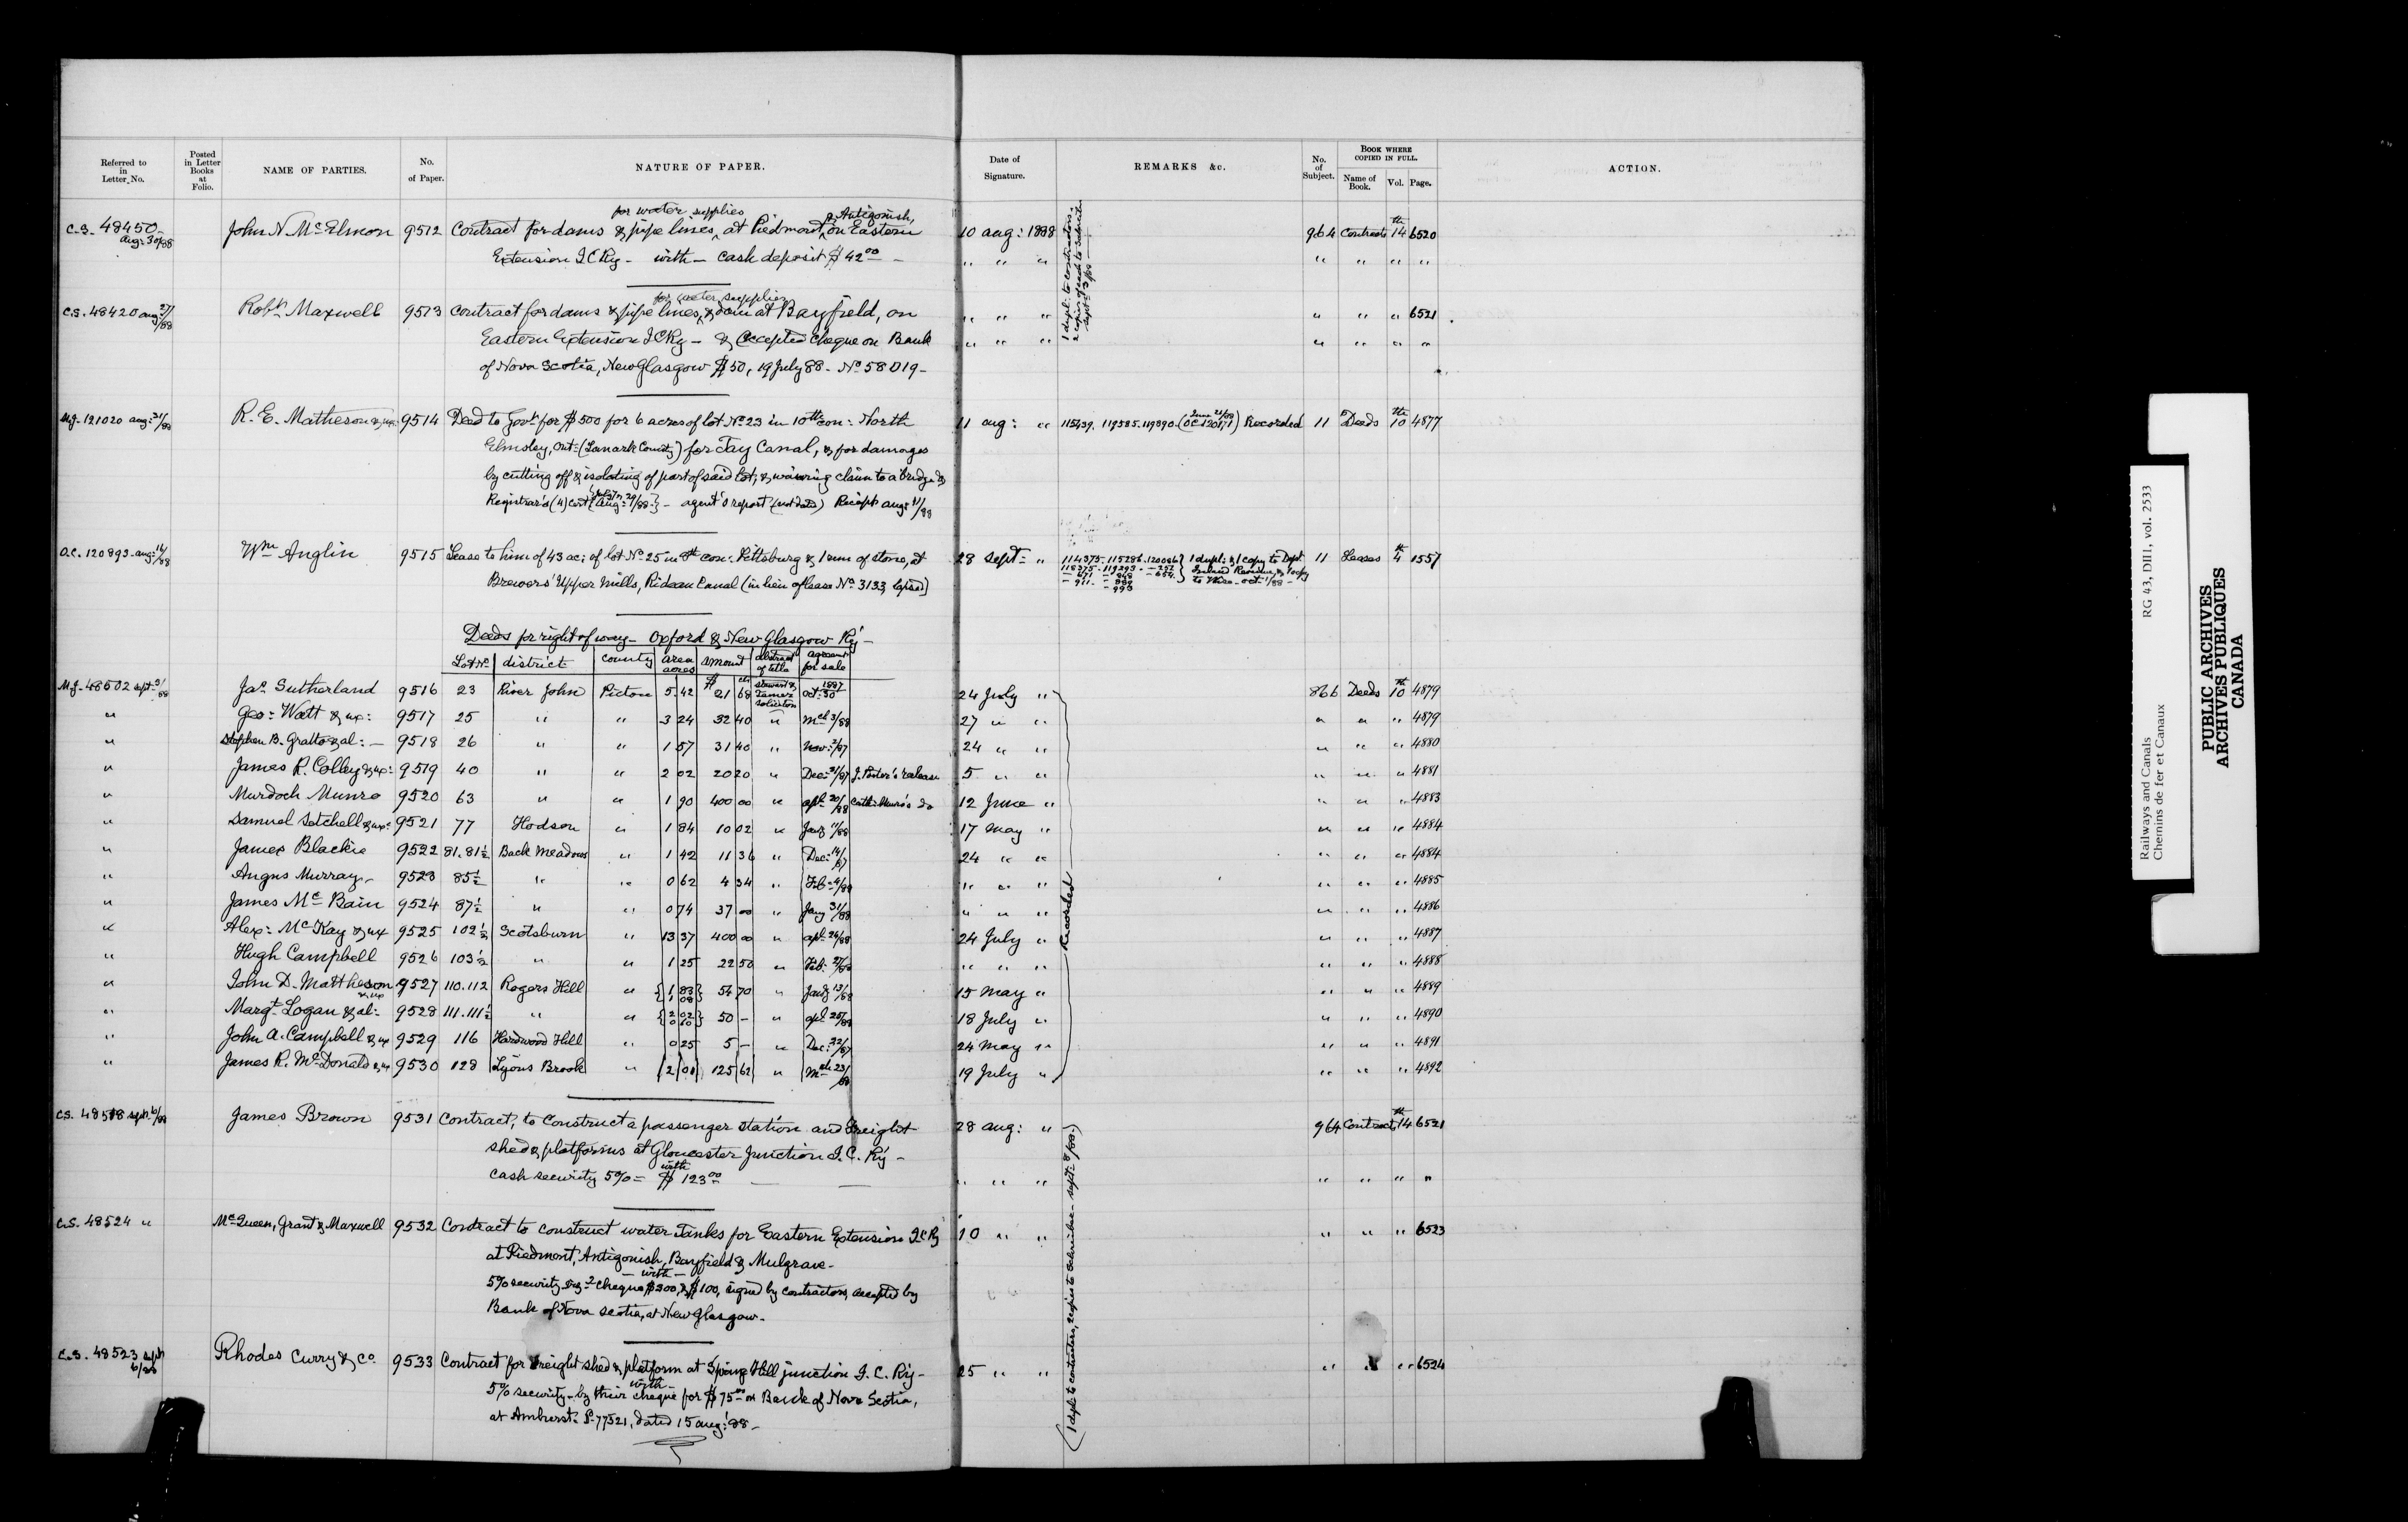 Referred to in Letter No. | Posted in Letter Books at Folio. | NAME OF PARTIES. | No. of Paper. | NATURE OF PAPER. | Date of Signature. | REMARKS &c. | No. of Subject. | BOOK WHERE COPIED IN FULL. Name of Book. Vol. Page. | ACTION.
for water supplies & Antigonish,
C.S. 48450 Aug: 30/88 John N. McElmon 9512 Contract for dams & pipe lines, at Piedmont, on Eastern 10 Aug: 1888 964 Contracts 14th 6520
Extension I C Ry - with - cash deposit $42.00 - " " " " " " "
for water supplies
C.S. 48420 Aug: 27/88 Robt. Maxwell 9513 Contract for dams & pipe lines, & dam at Bayfield, on " " " " " " 6521
Eastern Extension I C Ry - & Accepted Cheque on Bank " " " " " " "
of Nova Scotia, New Glasgow $50, 19 July 88 - No. 58019 -
1 dupl: to contractors, 2 copies of each to Schreiber Sept: 3/88
Mj. 121020 Aug: 31/88 R. E. Matheson & ux: 9514 Deed to Govt. for $500 for 6 acres of lot No. 23 in 10th con: North 11 Aug: " 115439. 119585. 119890. (June 21/88 OC 120171) Recorded 11 Deeds 10th 4877
Elmsley, Ont: (Lanark County) for Tay Canal, & for damages
by cutting off & isolating of part of said lot, & waiving claim to a bridge &
Registrar's (4) Cert: Aug: 7/88 - agent's report (not dated) Receipt Aug: 11/88
O.C. 120893 Aug: 14/88 Wm. Anglin 9515 Lease to him of 43 ac: of lot No. 25 in con: Pittsburg & 1 run of stone, at 28 Sept: " 114375. 115286. 120086 1 dupl: & 1 copy to Dept. 11 Leases 4th 1557
Brewers' Upper Mills, Rideau Canal (in lieu of lease No. 3133, lapsed) Inland Revenue, & 1 copy to Wise - Oct: 1/88 -
Deeds for right of way - Oxford & New Glasgow Ry -
Lot No. | district | county | area acres | amount | abstract of title | agreemt for sale
Mj. 48502 Sept: 3/88 Jas. Sutherland 9516 23 River John Pictou 5.42 $21 68 Stewart & Tanner solicitors Oct: 30 1887 24 July " 866 Deeds 10th 4879
" Geo: Watt & ux: 9517 25 " " 3 24 32 40 " Mch 3/88 27 " " " " " 4879
" Stephen B. Gratto & al: - 9518 26 " " 1 57 31 40 " Nov: 2/87 24 " " " " " 4880
" James R. Colley & ux: 9519 40 " " 2 02 20 20 " Dec: 31/87 J. Porter's release 5 " " " " " 4881
" Murdoch Munro 9520 63 " " 1 90 400 00 " Apl. 20/88 Cath: Munro's do 12 June " " " " 4883
" Samuel Setchell & ux: 9521 77 Hodson " 1 84 10 02 " Jany 11/88 17 May " " " " 4884
" James Blackie 9522 81. 81½ Back Meadows " 1 42 11 36 " Dec: 14/87 24 " " " " " 4884
" Angus Murray - 9523 85½ " " 0 62 4 34 " Feb: 4/88 " " " " " " 4885
" James McBain 9524 87½ " " 0 74 37 00 " Jany 31/88 " " " " " " 4886
" Alex: McKay & ux 9525 102½ Scotsburn " 13 37 400 00 " Apl. 26/88 24 July " " " " 4887
" Hugh Campbell 9526 103½ " " 1 25 22 50 " Feb: 27/88 " " " " " " 4888
" John D. Matheson & ux 9527 110. 112 Rogers Hill " {1 83 1 08} 54 70 " Jany 13/88 15 May " " " " 4889
" Margt. Logan & al: 9528 111. 111½ " " {2 02 0 60} 50 - " Apl. 25/88 18 July " " " " 4890
" John A. Campbell & ux 9529 116 Hardwood Hill " 0 25 5 - " Dec: 22/87 24 May " " " " 4891
" James R. McDonald & ux 9530 128 Lyons Brook " 2 01 125 62 " Mch 23/88 19 July " " " " 4892
Recorded
C.S. 48518 Sept. 6/88 James Brown 9531 Contract, to Construct a passenger station and freight 28 Aug: " 964 Contracts 14th 6521
shed & platforms at Gloucester Junction I. C. Ry -
with
cash security 5% = $123.00 " " " " " " "
C.S. 48524 " McQueen, Grant & Maxwell 9532 Contract to construct water Tanks for Eastern Extension I C Ry 10 " " " " " 6523
at Piedmont, Antigonish, Bayfield & Mulgrave -
- with -
5% security by 2 cheques $200, & $100, signed by contractors, accepted by
Bank of Nova Scotia, at New Glasgow.
C.S. 48523 Sept. 6/88 Rhodes Curry & Co. 9533 Contract for freight shed & platform at Spring Hill junction I. C. Ry - 25 " " " " " 6524
with
5% security - by their cheque for $75.00 on Bank of Nova Scotia,
at Amherst. 77521, dated 15 Aug: 88 -
(1 dupl: to contractors, 2 copies to Schreiber - Sept: 8/88.)
Railways and Canals RG 43, DIII, vol. 2533
Chemins de fer et Canaux
PUBLIC ARCHIVES
ARCHIVES PUBLIQUES
CANADA